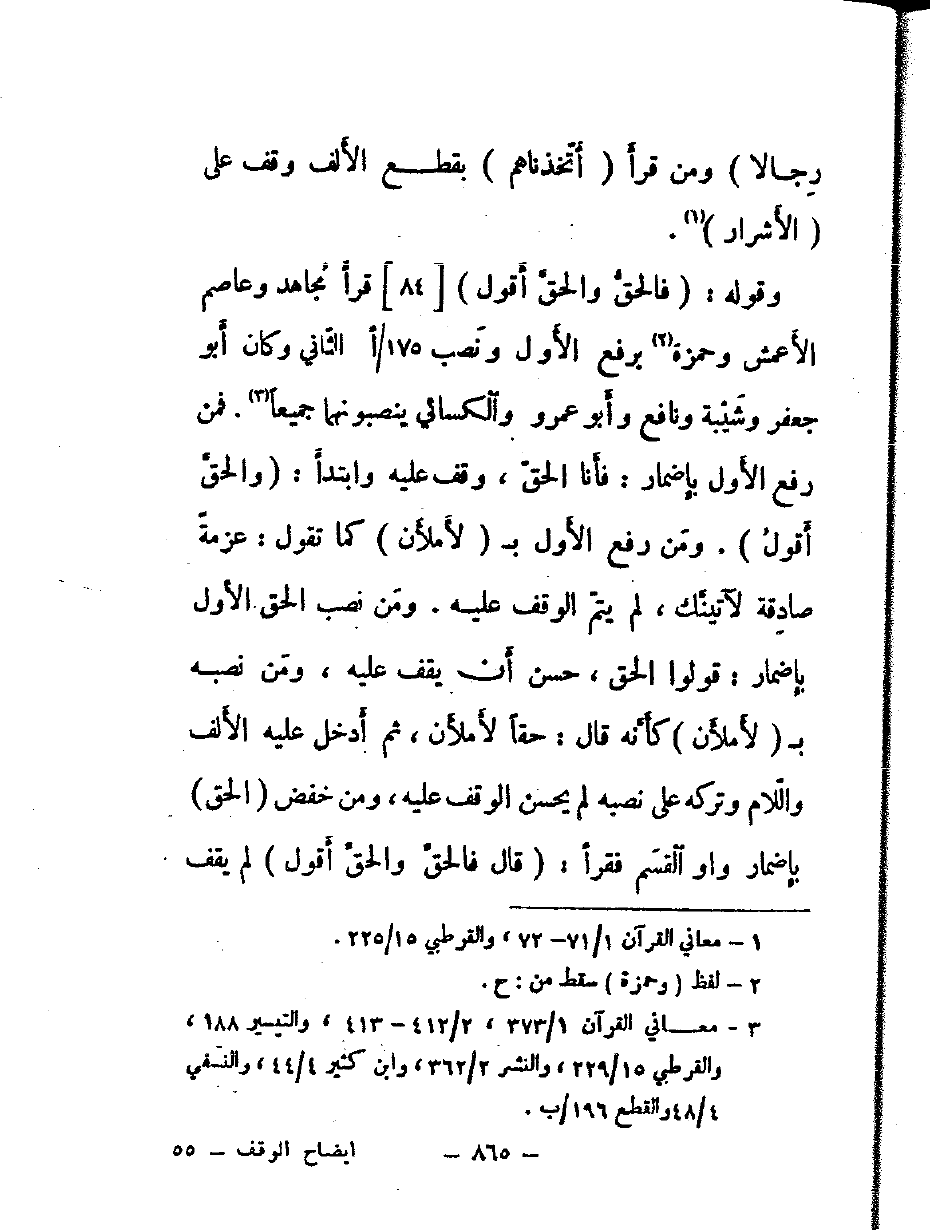 رِجـالا ) ومن قرأَ ( أَتّخذناهم ) بقطــــع الأَلف وقف على
( الأَشرار )(١) .
وقوله : ( فالحقُّ والحقَّ أَقول ) [ ٨٤ ] قرأَ مُجاهد وعاصم
الأَعمش وحمزة(٢) برفع الأَول ونَصب ١٧٥/أ الثّاني وكان أَبو
جعفر وشَيْبة ونافع وأَبو عمرو وٱلكسائي ينصبونهما جميعاً(٣) . فمن
رفع الأَول بإِضمار : فأَنا الحقّ ، وقف عليه وابتدأَ : ( والحقَّ
أَقولُ ) . ومَن رفع الأَول بـ ( لأَملأَن ) كما تقول : عزمةٌ
صادِقة لآتينَّك ، لم يتمّ الوقف عليـه . ومَن نصب الحق الأول
بإِضمار : قولوا الحق ، حسن أَن يقف عليه ، ومَن نصبـه
بـ ( لأَملأَن ) كأَنه قال : حقاً لأَملأَن ، ثم أَدخل عليه الأَلف
والّلام وتركه على نصبه لم يحسن الوقف عليه، ومن خفض ( الحق )
بإِضمار واو ٱلقسَم فقرأَ : ( قال فالحقِّ والحقَّ أَقول ) لم يقف
١ – معاني القرآن ١/٧١– ٧٢ ، والقرطبي ١٥/٢٢٥ .
٢ – لفظ ( وحمزة ) سقط من : ح .
٣ - معـــاني القرآن ١/٣٧٣ ، ٢/٤١٢ – ٤١٣ ، والتيسير ١٨٨ ،
والقرطبي ١٥/٢٢٩ ، والنشر ٢/٣٦٢، وابن كثير ٤/٤٤ ، والنسفي
٤/٤٨والقطع ١٩٦/ب .
– ٨٦٥ – ايضاح الوقف – ٥٥